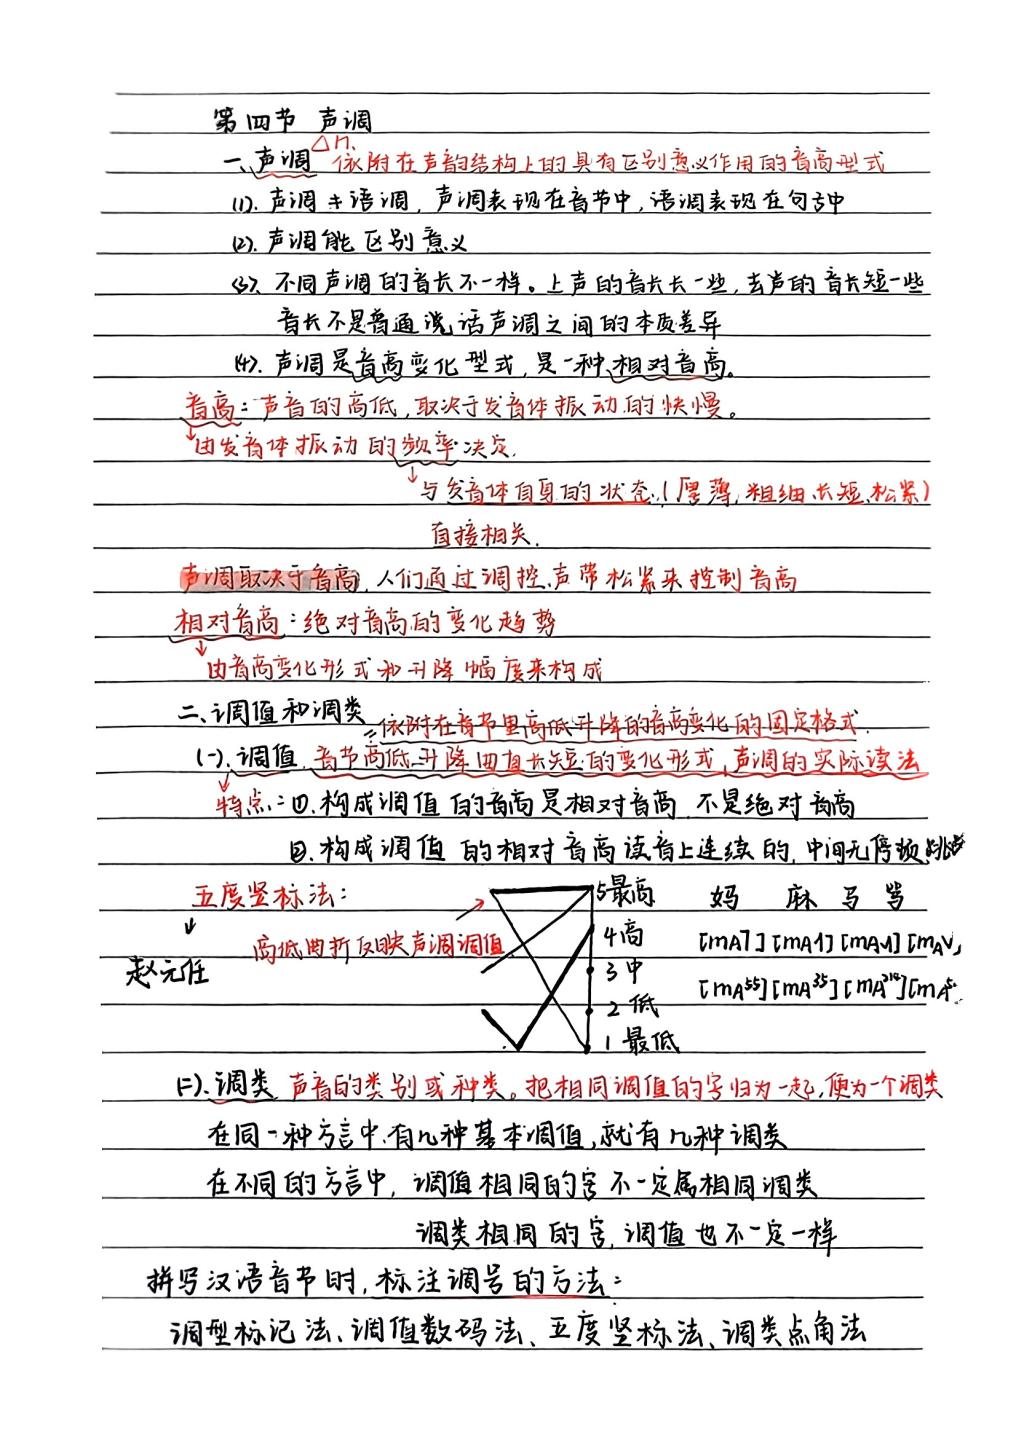 第四节 声调
一、声调 依附在声韵结构上的具有区别意义作用的音高型式
(1). 声调≠语调，声调表现在音节中，语调表现在句子中
(2). 声调能区别意义
(3). 不同声调的音长不一样。上声的音长长一些，去声的音长短一些
音长不是普通说话声调之间的本质差异
(4). 声调是音高变化型式，是一种相对音高。
音高：声音的高低，取决于发音体振动的快慢。
↓由发音体振动的频率决定.
↓与发音体自身的状态（厚薄、粗细、长短、松紧）
直接相关.
声调取决于音高，人们通过调控声带松紧来控制音高
相对音高：绝对音高的变化趋势
↓由音高变化形式和升降幅度来构成
二、调值和调类
依附在音节里高低升降的音高变化的固定格式
(一). 调值. 音节高低升降曲直长短的变化形式，声调的实际读法
特点：①. 构成调值的音高是相对音高 不是绝对音高
②. 构成调值的相对音高读音上连续的，中间无停顿
五度竖标法： 5最高 妈 麻 马 骂
高低曲折反映声调调值 4高 [mA˥] [mA˧˥]
赵元任 3中 [mA⁵⁵] [mA³⁵] [mA²¹⁴]
2 低
1 最低
(二). 调类 声音的类别或种类。把相同调值的字归为一起，便为一个调类
在同一种方言中，有几种基本调值，就有几种调类
在不同的方言中，调值相同的字不一定属相同调类
调类相同的字，调值也不一定一样
拼写汉语音节时，标注调号的方法：
调型标记法、调值数码法、五度竖标法、调类点角法